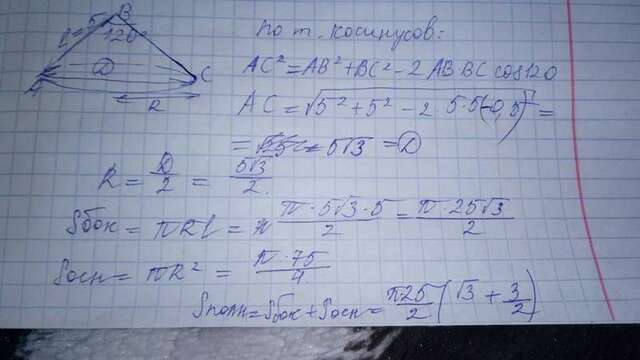 B
l=5
120°
D
A
C
R
по т. косинусов:
AC²=AB²+BC²-2 AB·BC cos120
AC=√5²+5²-2·5·5(-0,5)=
= 5√3 = D
R = D/2 = 5√3/2
Sбок = πRl = π·5√3·5/2 = π·25√3/2
Sосн = πR² = π·75/4
Sполн=Sбок+Sосн=π25/2(√3+3/2)